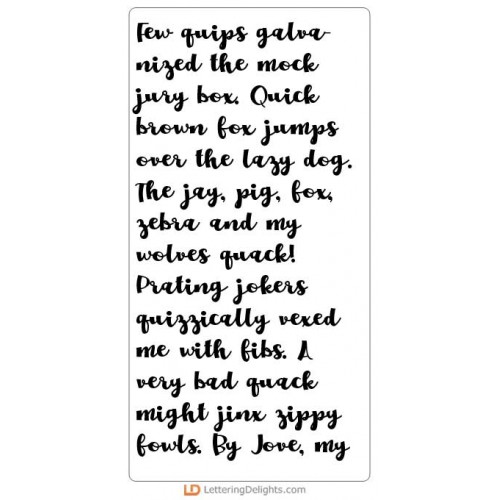 Few quips galva-
nized the mock
jury box. Quick
brown fox jumps
over the lazy dog.
The jay, pig, fox,
zebra and my
wolves quack!
Prating jokers
quizzically vexed
me with fibs. A
very bad quack
might jinx zippy
fowls. By Jove, my
LD LetteringDelights.com